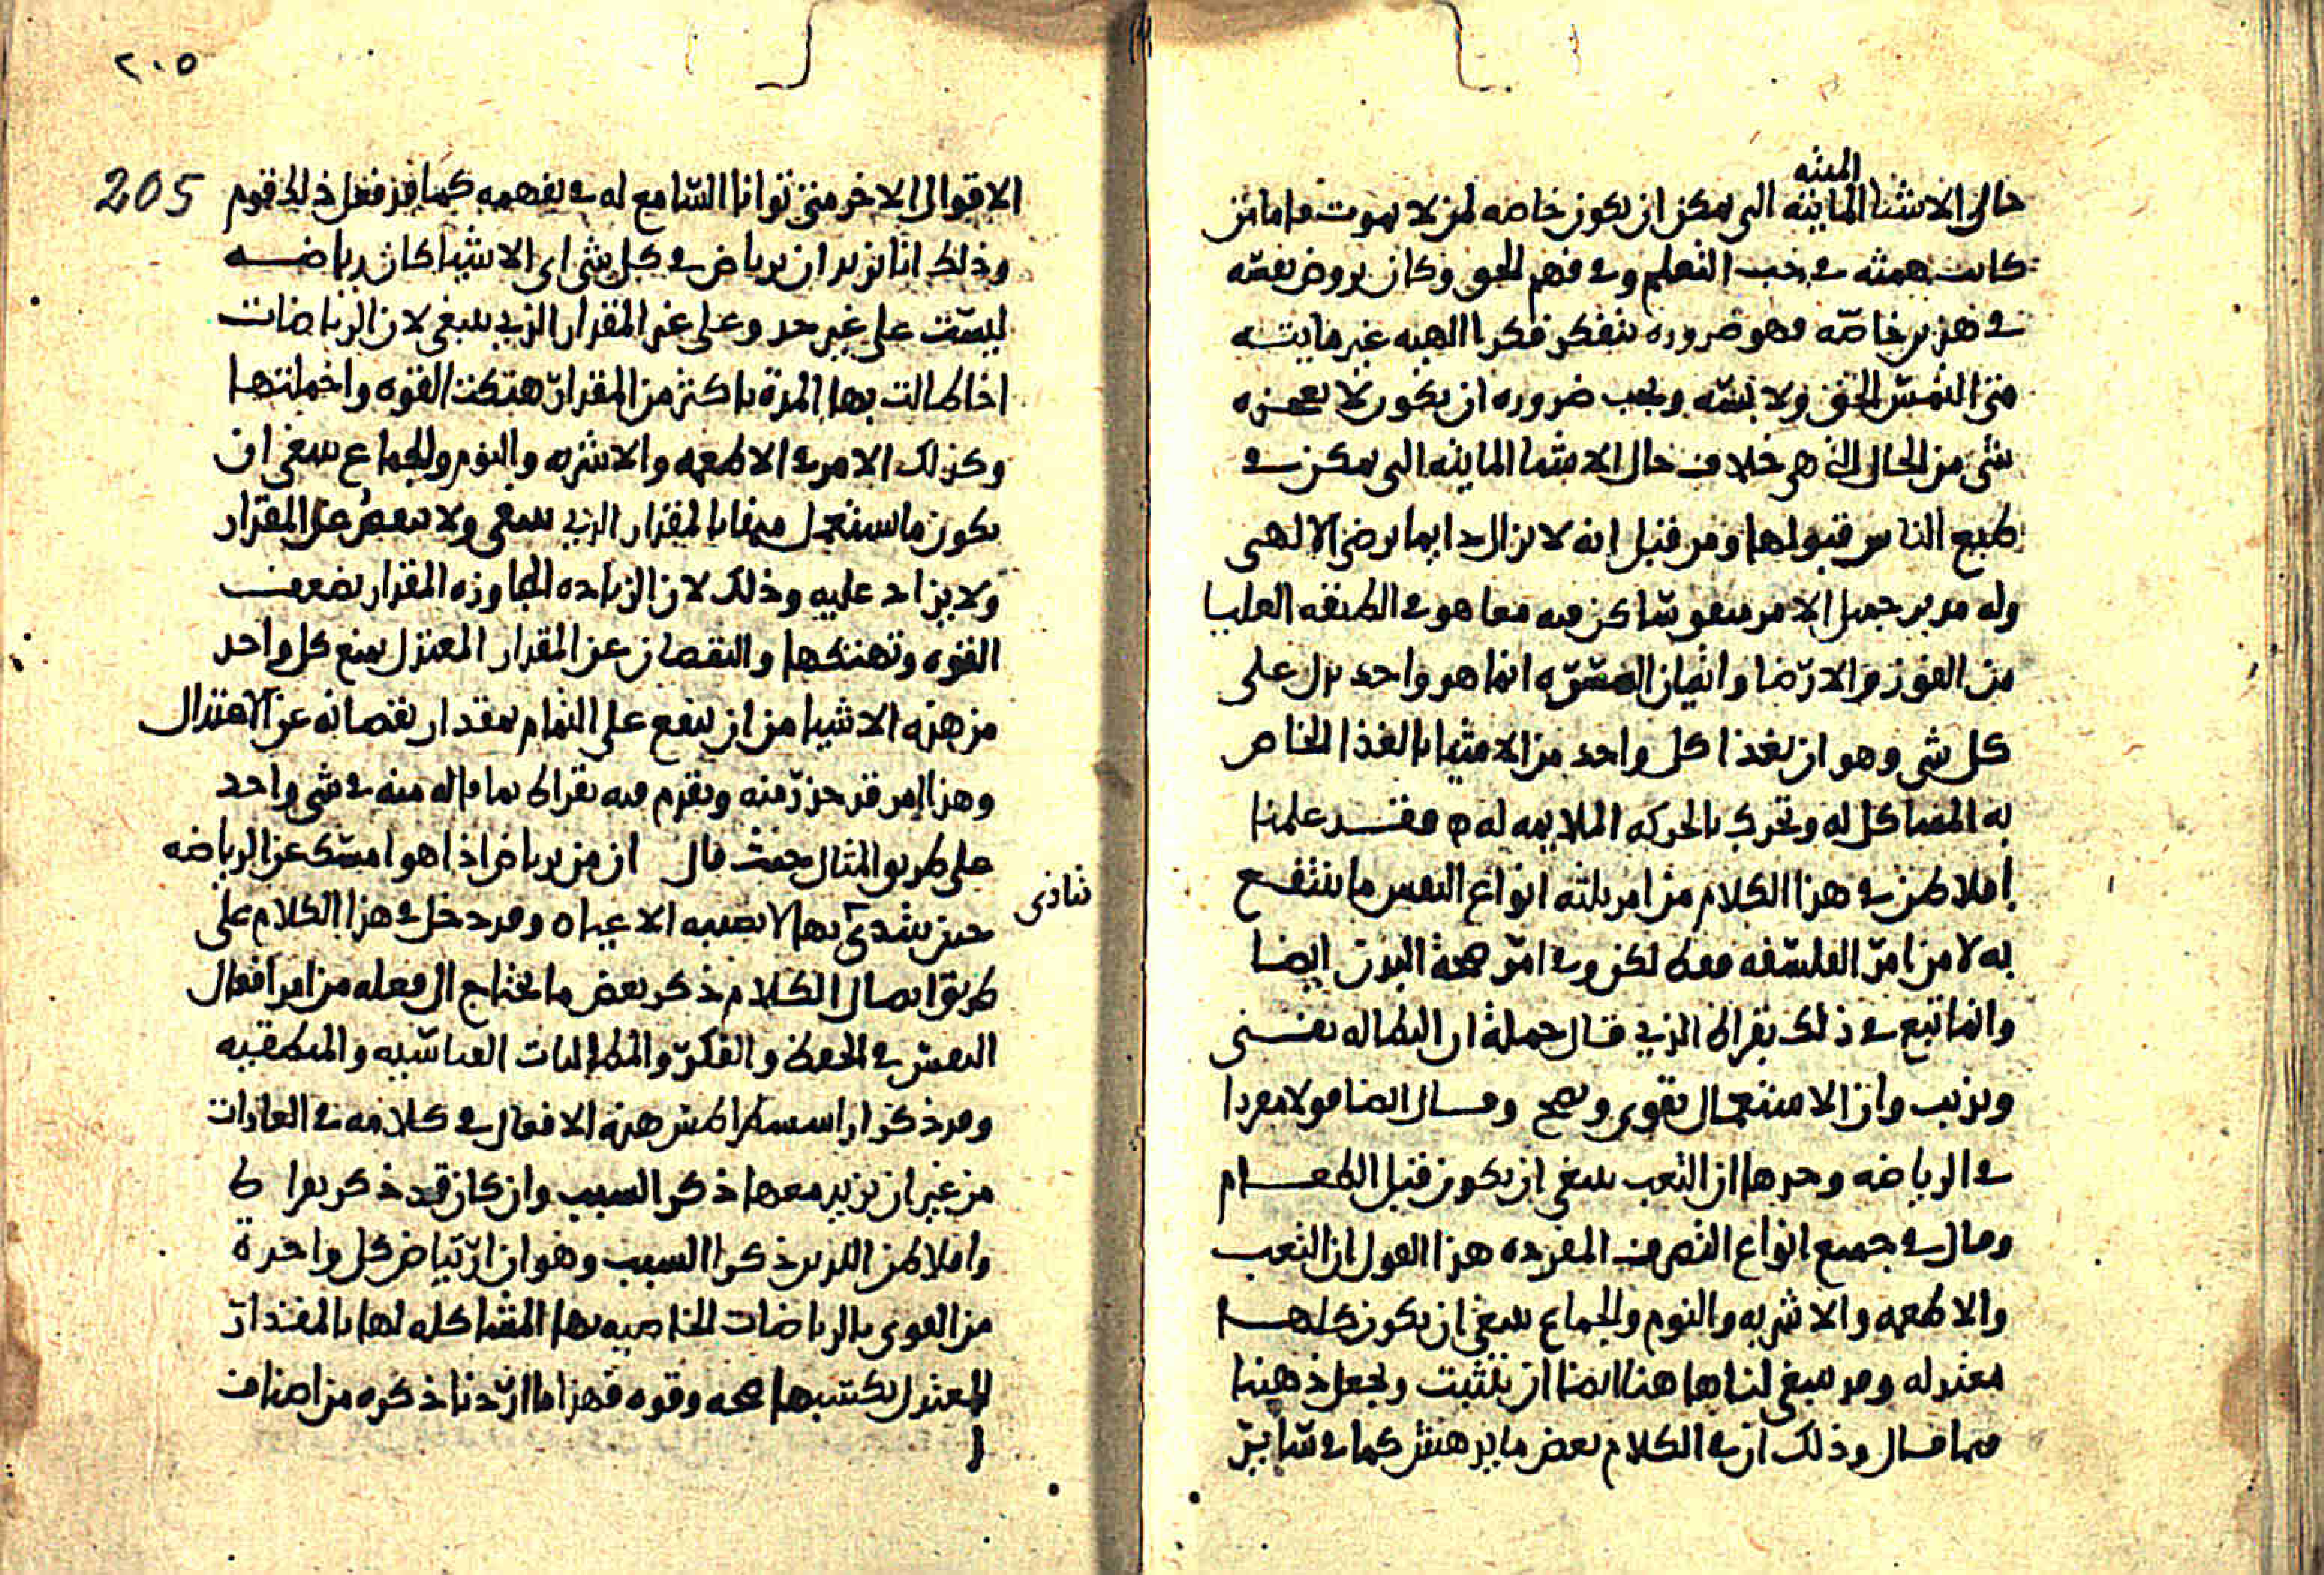 الميته
حال الاشيا المايته التى يمكن ان يكون خاصه لمن لا يموت فاما من
كانت همته فى حب التعلم وفى فهم الحق وكان يروض نفسه
فى هذين خاصه فهو ضروره يتفكر فكرا الهيه غير مايته
متى التمس الحق ولا بسه ويجب ضروره ان يكون لا يعجزه
شى من الحال التى هى خلاف حال الاشيا المايته التى يمكن فى
طبع الناس قبولها ومن قبل انه لا يزال دايما يرضى الالهى
وله مدبر جميل الامر متفق ساكن فيه معا هو فى الطبقه العليا
من الفوز والارتضا واتيان المسرّه انما هو واحد يدل على
كل شى وهو ان يغذا كل واحد من الاشيا بالغذا الخاص
به المشاكل له وتحرك بالحركه الملايمه له ه فقد علمنا
افلاطن فى هذا الكلام من امر ثلثه انواع النفس ما ينتفع
به لا من امر الفلسفه فقط لكن وفى امر صحة البدن ايضا
وانما اتبع فى ذلك بقراط الذى قال جملة ان البطاله تفنى
وتذيب وان الاستعمال يقوى ويصح وقال ايضا قولا مفردا
فى الرياضه وحدها ان التعب ينبغى ان يكون قبل الطعام
وقال فى جميع انواع التصرف المفرده هذا القول ان التعب
والاطعمه والاشربه والنوم والجماع ينبغى ان يكون كلها
معتدله وقد ينبغى لنا هاهنا ايضا ان نتثبت ونجعل ذهننا
فيما قال وذلك ان فى الكلام بعض ما يدهش كما فى ساير
٢٠٥
205
الاقوال الاخر متى توانا السامع له فى تفهمه كما قد فعل ذلك قوم
وذلك انا نريد ان يرياض فى كل شى اى الاشيا كان رياضه
ليست على غير حد وعلى غير المقدار الذى ينبغى لان الرياضات
اذا طالت بها المدة باكثر من المقدار هتكت القوه واخملتها
وكذلك الامر فى الاطعمه والاشربه والنوم والجماع ينبغى ان
يكون ما يستعمل منها بالمقدار الذى ينبغى ولا ينقص عن المقدار
ولا يزاد عليه وذلك لان الزياده المجاوزه المقدار تضعف
القوه وتهتكها والنقصان عن المقدار المعتدل يمنع كل واحد
من هذه الاشيا من ان ينفع على التمام بمقدار نقصانه عن الاعتدال
وهذا امر قد حذر منه وتقدم فيه بقراط بما قاله منه فى شى واحد
على طريق المثال حيث قال ان من يرياض اذا هو امسك عن الرياضه
حين يبتدى بها لا يصيبه الاعياه وقد دخل فى هذا الكلام على
تتاذى
طريق اتصال الكلام ذكر بعض ما يحتاج الى فعله من امر افعال
النفس فى الحفظ والفكر والمطالبات القياسيه والمنطقيه
وقد ذكر اراسسطراطس هذه الافعال فى كلامه فى العادات
من غير ان يزيد معها ذكر السبب وان كان قد ذكر بقراط
وافلاطن اللذين ذكرا السبب وهو ان ارتياض كل واحدة
من القوى بالرياضات الخاصيه بها المشاكله لها بالمقدار
المعتدل يكسبها صحه وقوه فهذا ما اردنا ذكره من اصناف